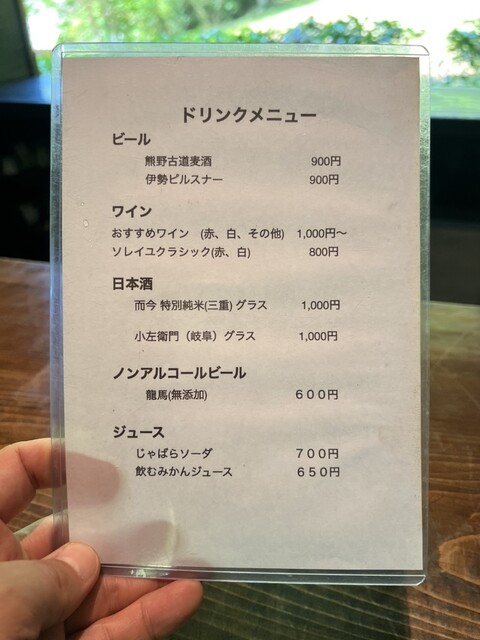 ドリンクメニュー
ビール
熊野古道麦酒 900円
伊勢ピルスナー 900円
ワイン
おすすめワイン (赤、白、その他) 1,000円〜
ソレイユクラシック(赤、白) 800円
日本酒
而今 特別純米(三重) グラス 1,000円
小左衛門（岐阜）グラス 1,000円
ノンアルコールビール
龍馬(無添加) ６００円
ジュース
じゃばらソーダ ７００円
飲むみかんジュース ６５０円